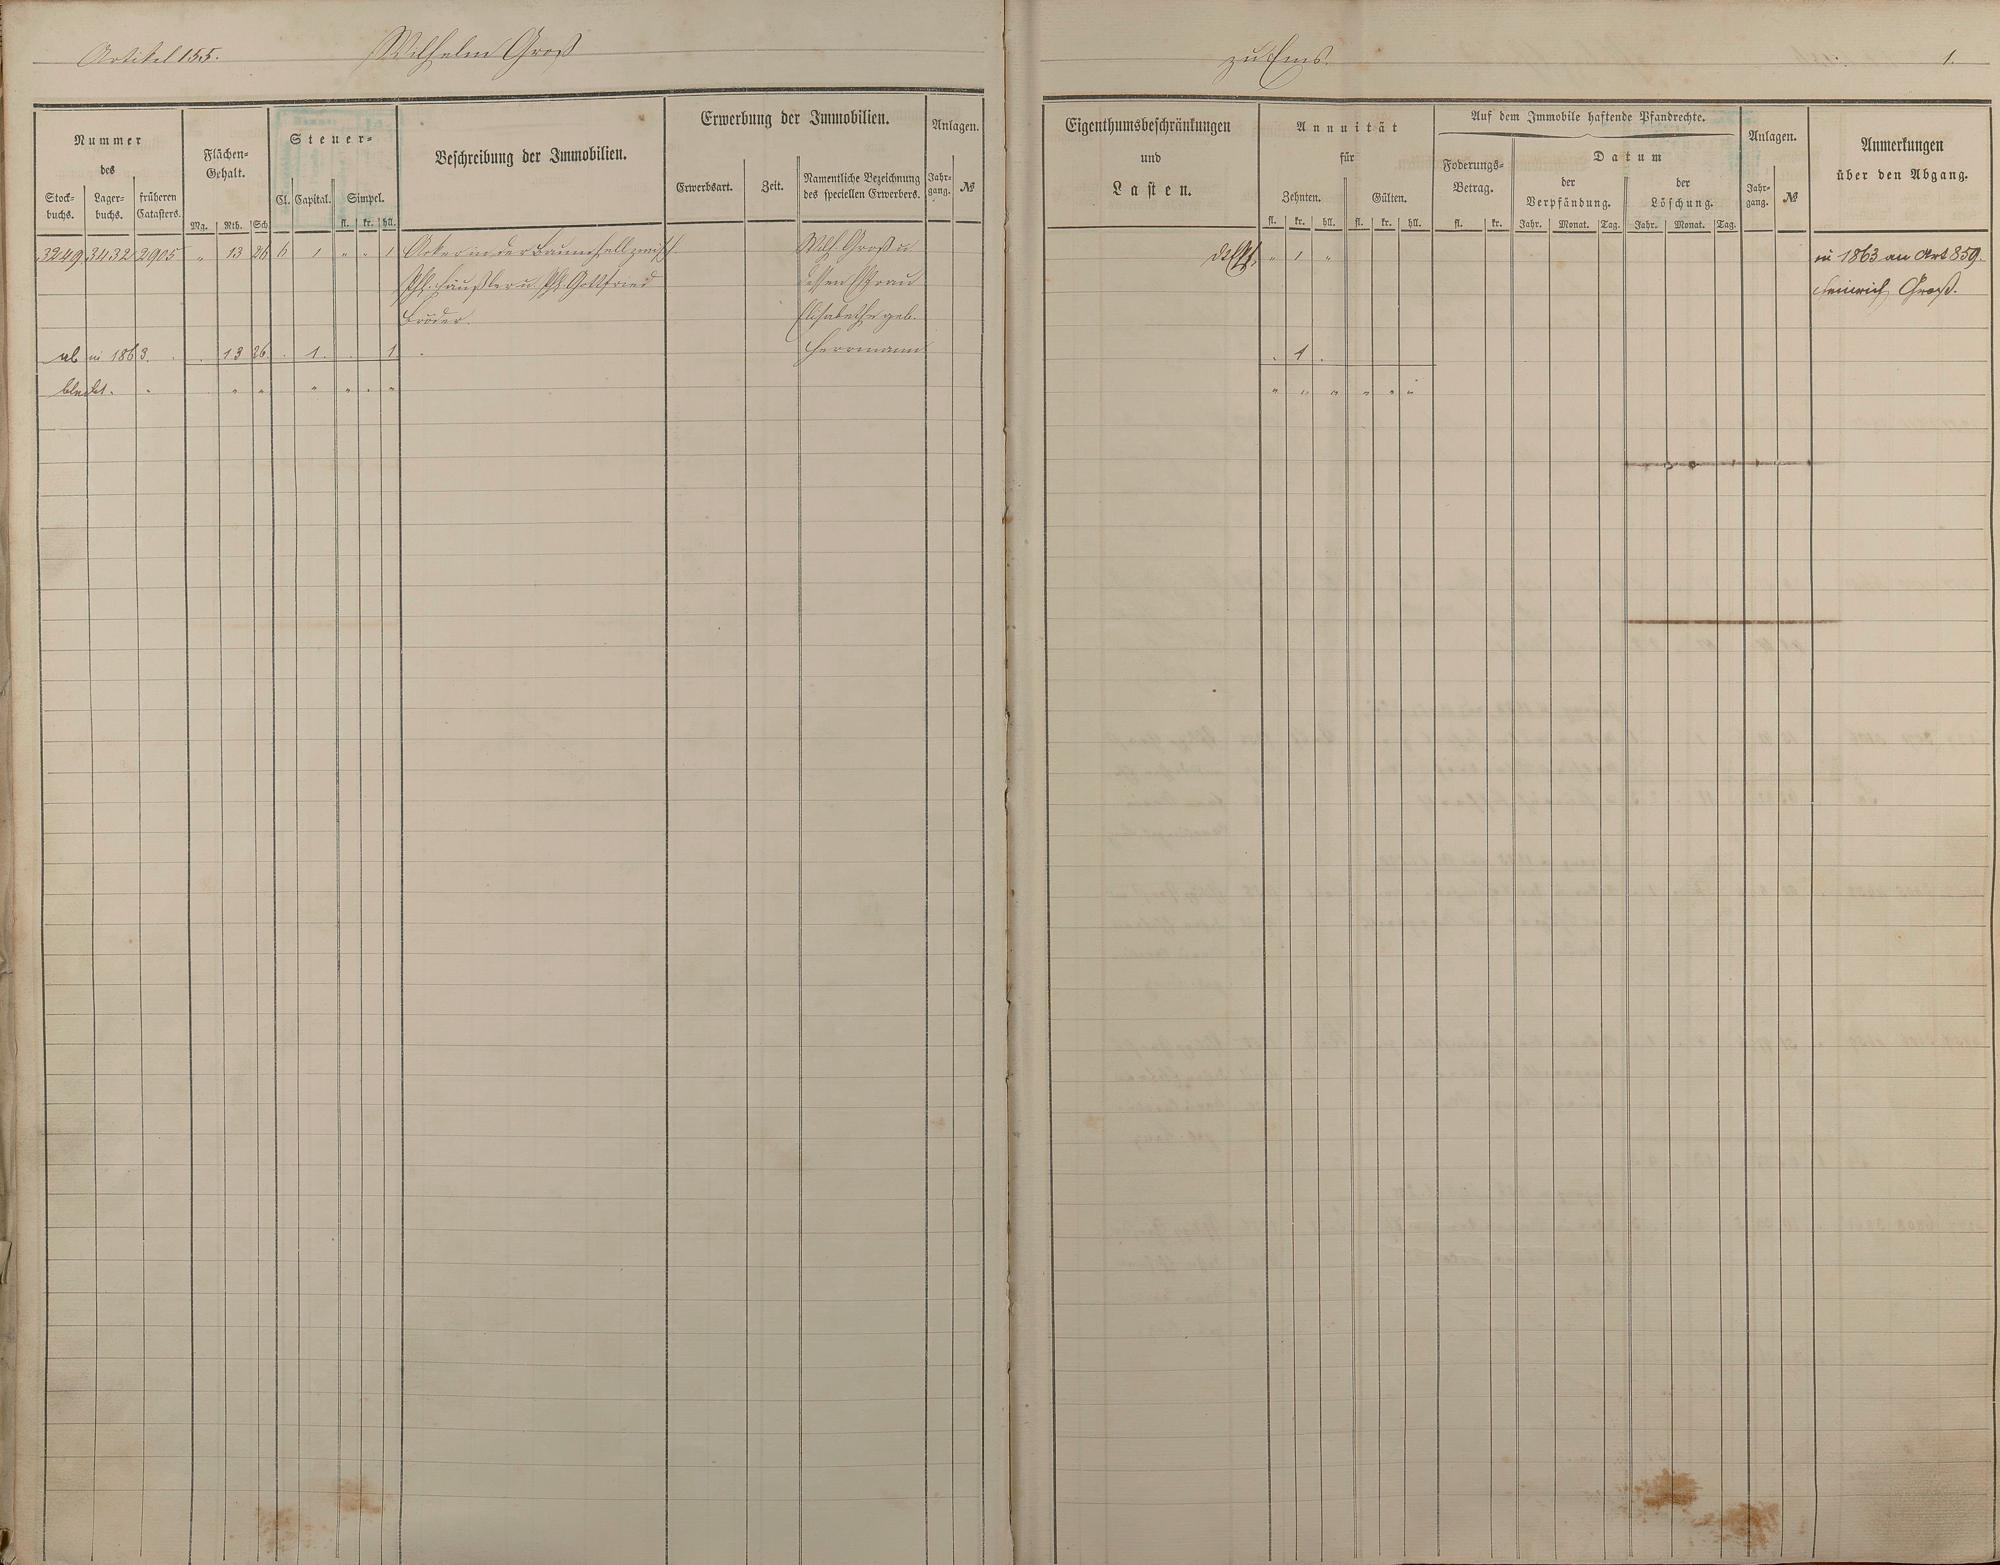 Artikel 155. Wilhelm Groß zu Ems. 1.
Nummer
des
Stock-
buchs.
Lager-
buchs.
früheren
Catasters.
Flächen-
Gehalt.
Mg. Rth. Sch
Steuer-
Cl. Capital. Simpel.
fl. kr. hll.
Beschreibung der Immobilien.
Erwerbung der Immobilien.
Erwerbsart. Zeit.
Namentliche Bezeichnung
des speciellen Erwerbers.
Anlagen.
Jahr-
gang.
№
Eigenthumsbeschränkungen
und
Lasten.
Annuität
für
Zehnten. Gülten.
fl. kr. hll. fl. kr. hll.
Auf dem Immobile haftende Pfandrechte.
Foderungs-
Betrag.
fl. kr.
Datum
der
Verpfändung.
Jahr. Monat. Tag.
der
Löschung.
Jahr. Monat. Tag.
Anlagen.
Jahr-
gang.
№
Anmerkungen
über den Abgang.
3249 3432 3905 " 13 26 6 1 " " 1 Acker in der zwisch. Wilh. Groß u. " 1 " in 1863 an Art 859.
Ph. Häußler u Ph. Gottfried dessen Ehfrau Heinrich Groß.
Bröder. Elisabethe geb.
ab in 1863. 13 26. 1. 1. Herrmann 1.
bleibt. " " " " " " " " " " " "